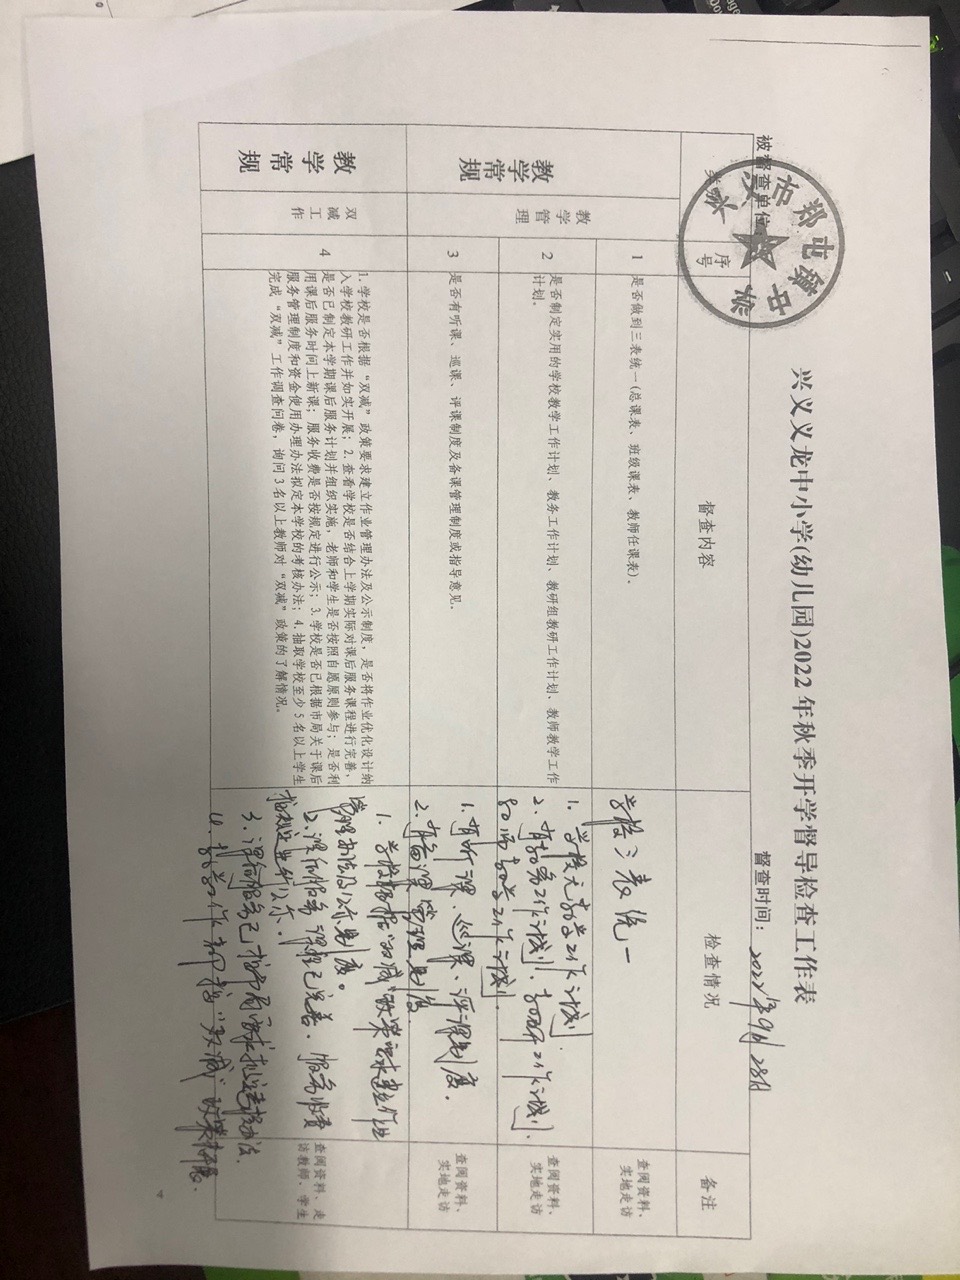 兴义义龙中小学(幼儿园)2022年秋季开学督导检查工作表
被督查单位：
督查时间：2022年9月28日
市郑屯镇中
序号
督查内容
检查情况
备注
教学常规
教学管理
1
是否做到三表统一(总课表、班级课表、教师任课表)。
学校三表统一
查阅资料、
实地走访
2
是否制定实用的学校教学工作计划、教务工作计划、教研组教研工作计划、教师教学工作
计划。
1. 学校无教学工作计划
2. 有教务工作计划、教研工作计划、
教师教学工作计划.
查阅资料、
实地走访
3
是否有听课、巡课、评课制度及备课管理制度或指导意见。
1. 有听课、巡课、评课制度.
2. 有备课管理制度
查阅资料、
实地走访
教学常规
双减工作
4
1. 学校是否根据“双减”政策要求建立作业管理办法及公示制度，是否将作业优化设计纳
入学校教研工作并如实开展；2. 查看学校是否结合上学期实际对课后服务课程进行完善，
是否已制定本学期课后服务计划并组织实施，老师和学生是否按照自愿原则参与；是否利
用课后服务时间上新课；服务收费是否按规定进行公示；3. 学校是否已根据市局关于课后
服务管理制度和资金使用办理办法拟定本学校的考核办法；4. 抽取学校至少5名以上学生
完成“双减”工作调查问卷，询问3名以上教师对“双减”政策的了解情况。
1. 学校根据“双减”政策要求建立作业
管理办法及公示制度。
2. 课后服务课程已完善、服务收费
按规定进行公示。
3. 课后服务已按市局要求拟定考核办法.
4.
“双减”政策
查阅资料、走
访教师、学生